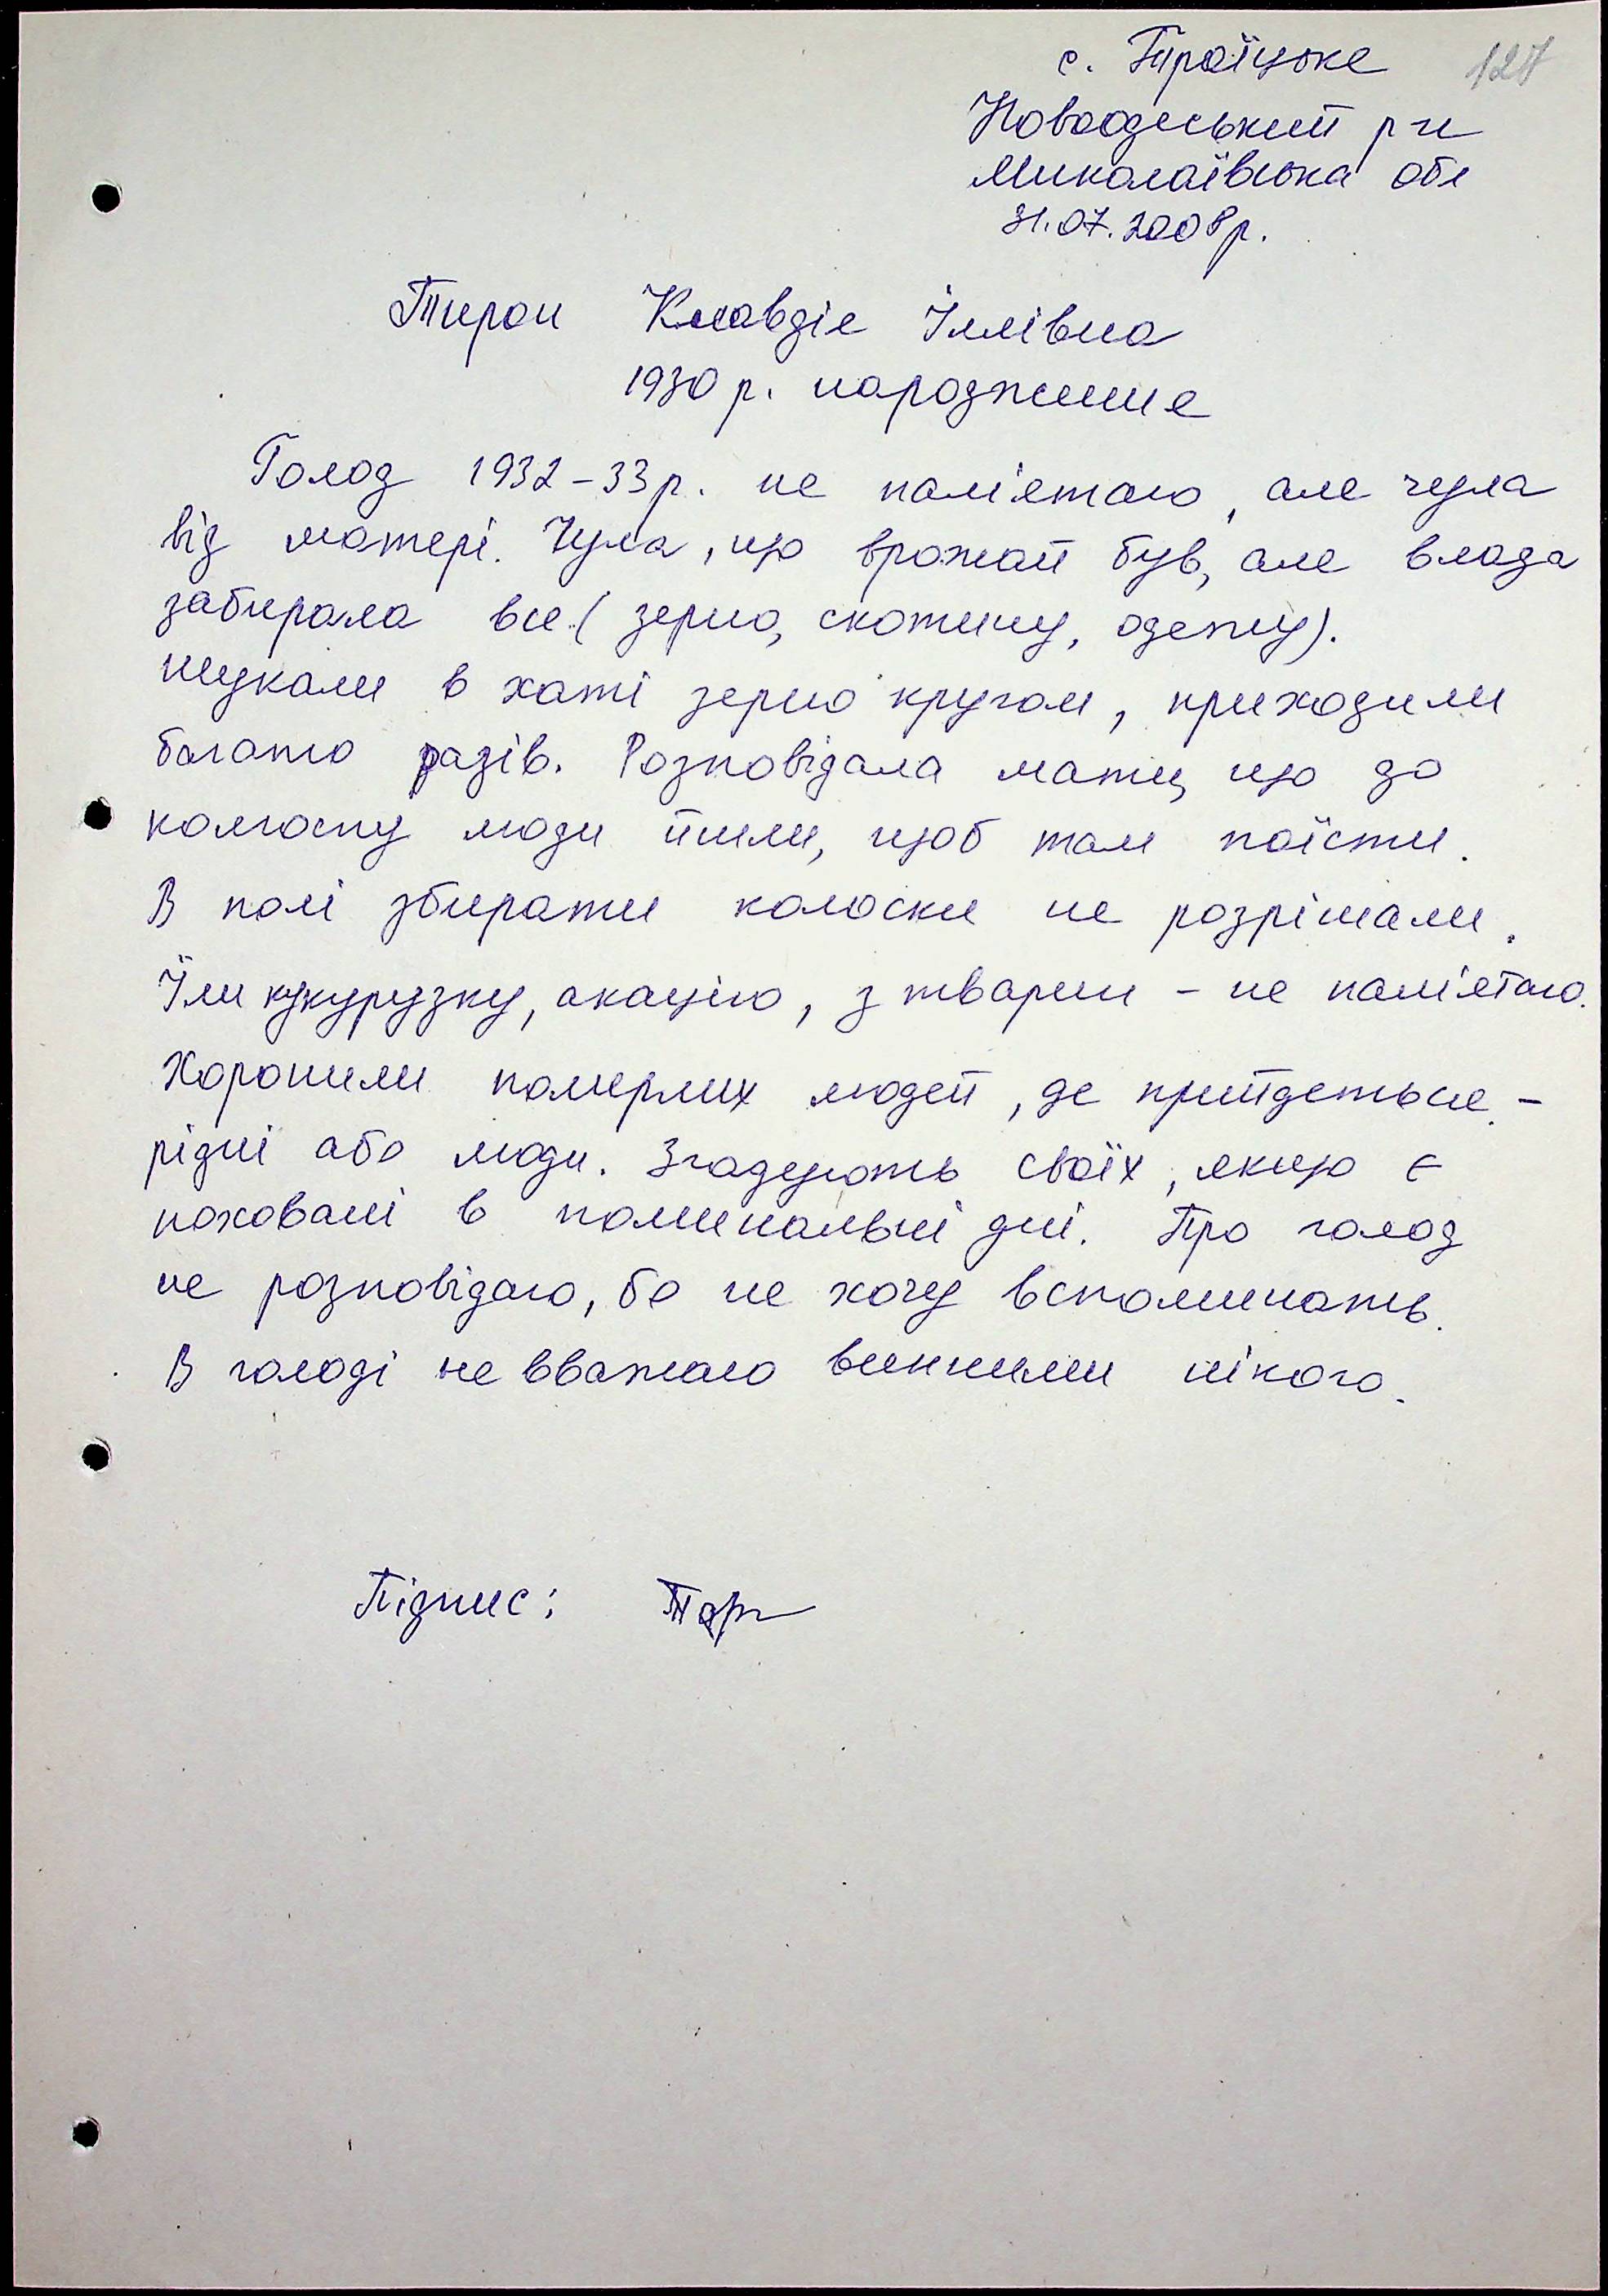 с. Троїцьке 127
Новоодеський р-н
Миколаївська обл
31.07.2008р.
Тирон Клавдія Іллівна
1930 р. народження
Голод 1932-33р. не пам'ятаю, але чула
від матері. Чула, що врожай був, але влада
забирала все (зерно, скотину, одежу).
шукали в хаті зерно кругом, приходили
багато разів. Розповідала мати, що до
колгоспу люди йшли, щоб там поїсти.
В полі збирати колоски не розрішали.
Їли кукурузку, акацію, з тварин - не пам'ятаю.
Хоронили померлих людей, де прийдеться -
рідні або люди. Згадують своїх, якщо є
поховані в поминальні дні. Про голод
не розповідаю, бо не хочу вспоминать.
В голоді не вважаю винними нікого.
Підпис: